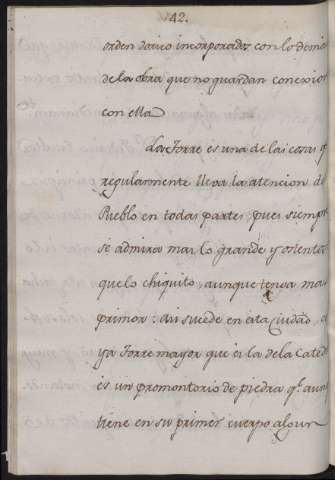 42.
orden dorico incorporados con lo demas
de la obra que no guardan conexion
con ella.
La Torre es una de las cosas q
regularmente lleva la atencion del
Pueblo en todas partes, pues siempre
se admira mas lo grande y ostentos
que lo chiquito, aunque tenga mas
primor: Asi sucede en esta Ciudad, a
ya Torre mayor que es la de la Cated
es un promontorio de piedra q.e aunq
tiene en su primer cuerpo algun